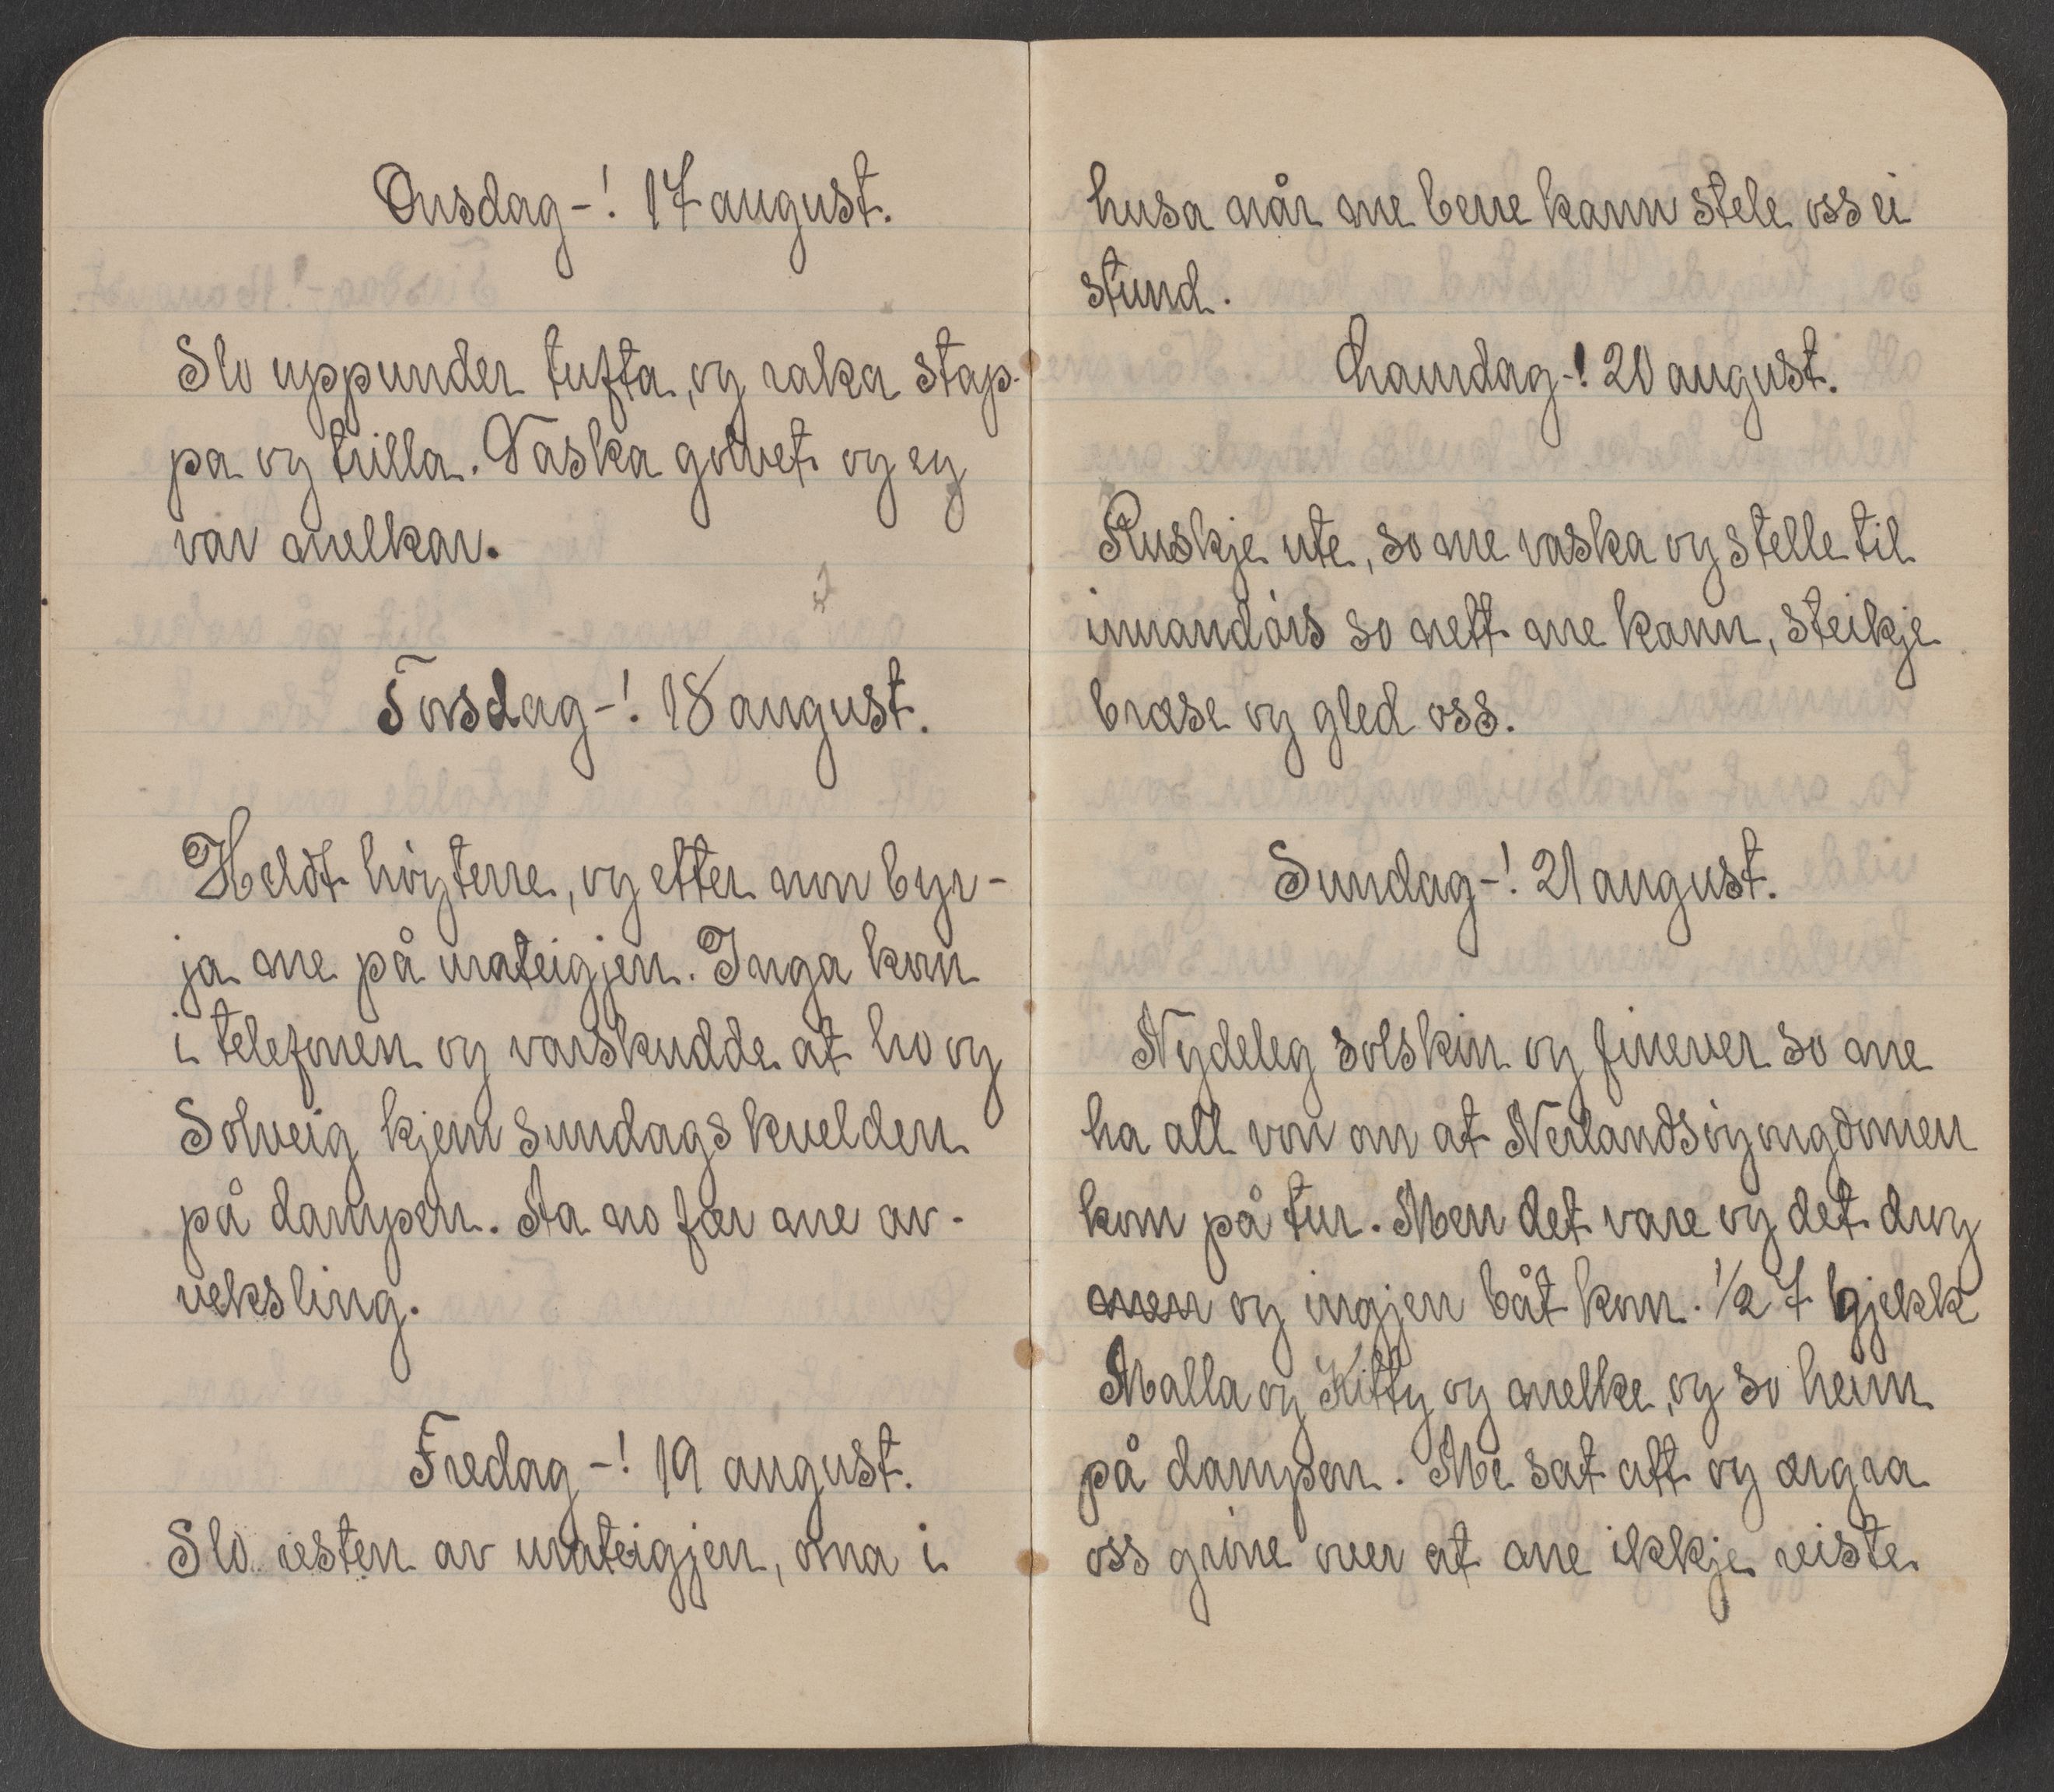 Onsdag-! 17 august.
Slo uppunder tufta, og raka stap-
pa og trilla. Vaska golvet og eg
var melkar.
Torsdag-! 18 august.
Heldt høyterre, og etter non byr-
ja me på urateigjen. Inga kom
i telefonen og varskudde at ho og
Solveig kjem sundagskvelden
på dampen. Ha no fær me av-
veksling.
Fredag-! 19 august.
Slo resten av urateigjen, orna i
husa når me berre kann stele oss ei
stund.
Laurdag-! 20 august.
Ruskje ute, so me vaska og stelle til
innandørs so nett me kann, steikje
bræse og gled oss.
Sundag-! 21 august.
Nydeleg solskin og finever so me
ha all von om at Nerlandsøyongdomen
kom på tur. Men det vare og det drog
men og ingjen båt kom. ½ 7 gjekk
Malla og Kitty og melke, og so heim
på dampen. Me sat att og ærgra
oss grøne over at me ikkje reiste